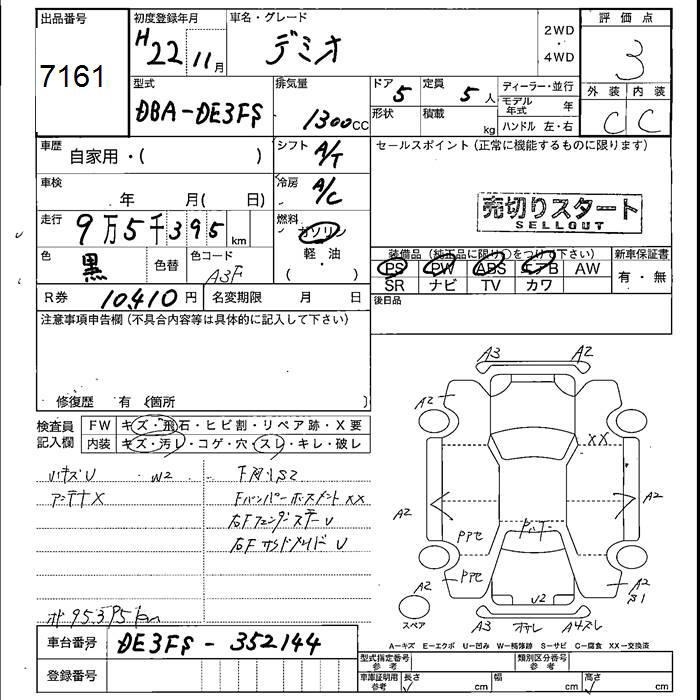 出品番号 初度登録年月 車名・グレード 2WD ・ 4WD 評価点
7161 H22 11月 デミオ 3
型式 排気量 ドア 定員 ディーラー・並行 外装 内装
DBA-DE3FS 1300CC 5 5人 モデル年式 年 C C
形状 積載 kg ハンドル 左・右
車歴 自家用・( ) シフト A/T セールスポイント(正常に機能するものに限ります)
車検 年 月( 日) 冷房 A/C
売切りスタート
SELLOUT
走行 9万5千395km 燃料 ガソリン
軽・油
( )
色 黒 色替 色コード A3F
装備品(純正品に限り○をつけて下さい) 新車保証書
PS PW ABS エアB AW 有・無
SR ナビ TV カワ
R券 10,410円 名変期限 月 日 後日品
注意事項申告欄(不具合内容等は具体的に記入して下さい)
修復歴 有 (箇所 )
検査員記入欄 FW キズ・飛石・ヒビ割・リペア跡・X要
内装 キズ・汚レ・コゲ・穴・スレ・キレ・破レ
W2
アンテナX
右FフェンダーステーU
95,395km
A3 A2
A2
XX
A2 A2
A2 A2
U2
スペア A3 A4
A-キズ E-エクボ U-凹み W-補修跡 S-サビ C-腐食 XX-交換済
車台番号 DE3FS-352144
登録番号
型式指定番号 参考 類別区分番号 参考
車庫証明用 参考 長さ cm 幅 cm 高さ cm